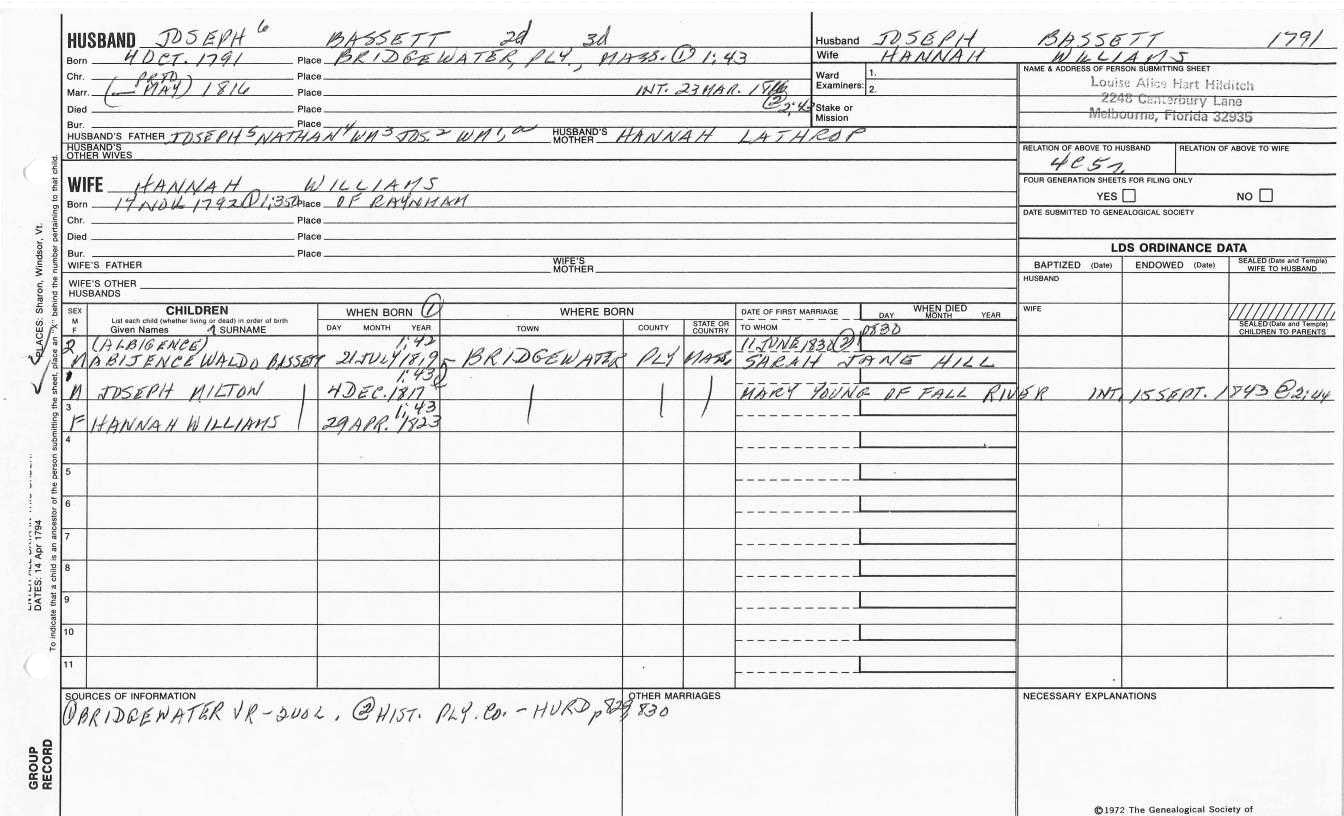 HUSBAND JOSEPH 6 BASSETT 2d 3d
Born 4 OCT. 1791 Place BRIDGEWATER, PLY., MASS. ① 1:43
Chr. Place
Marr. (MAY) 1816 INT. 23 MAR. 1816
Died Place
Bur. Place
HUSBAND'S FATHER JOSEPH 5 NATHAN 4 WM 3 JOS. 2 WM 1 HUSBAND'S MOTHER HANNAH LATHROP
HUSBAND'S OTHER WIVES
WIFE HANNAH WILLIAMS
Born 17 NOV. 1792 Place OF RAYNHAM
Chr. Place
Died Place
Bur. Place
WIFE'S FATHER WIFE'S MOTHER
WIFE'S OTHER HUSBANDS
Husband JOSEPH BASSETT 1791
Wife HANNAH WILLIAMS
Ward Examiners: 1. 2.
Stake or Mission
NAME & ADDRESS OF PERSON SUBMITTING SHEET
Louise Alice Hart Hilditch
2248 Canterbury Lane
Melbourne, Florida 32935
RELATION OF ABOVE TO HUSBAND RELATION OF ABOVE TO WIFE
4C5r
FOUR GENERATION SHEETS FOR FILING ONLY
YES NO
DATE SUBMITTED TO GENEALOGICAL SOCIETY
LDS ORDINANCE DATA
BAPTIZED (Date) ENDOWED (Date) SEALED (Date and Temple) WIFE TO HUSBAND
HUSBAND
WIFE
SEALED (Date and Temple) CHILDREN TO PARENTS
SEX M F CHILDREN WHEN BORN ① WHERE BORN DATE OF FIRST MARRIAGE WHEN DIED
List each child (whether living or dead) in order of birth
Given Names SURNAME DAY MONTH YEAR TOWN COUNTY STATE OR COUNTRY TO WHOM DAY MONTH YEAR
2 (ALBIGENCE) 1:42 11 JUNE 1838 ② p830
M ABIJENCE WALDO BASSETT 21 JULY 1819 BRIDGEWATER PLY MASS. SARAH JANE HILL
1:43
M JOSEPH MILTON 4 DEC. 1817 MARY YOUNG OF FALL RIVER INT. 15 SEPT. 1843 @ 2:44
3 1:43
F HANNAH WILLIAMS 29 APR. 1823
4
5
6
7
8
9
10
11
SOURCES OF INFORMATION OTHER MARRIAGES NECESSARY EXPLANATIONS
① BRIDGEWATER VR - 2 VOL. ② HIST. PLY. CO. - HURD, p 829, 830
©1972 The Genealogical Society of
PLACES: Sharon, Windsor, Vt.
DATES: 14 Apr 1794
To indicate that a child is an ancestor of the person submitting the sheet, place an "X" behind the number pertaining to that child.
GROUP RECORD